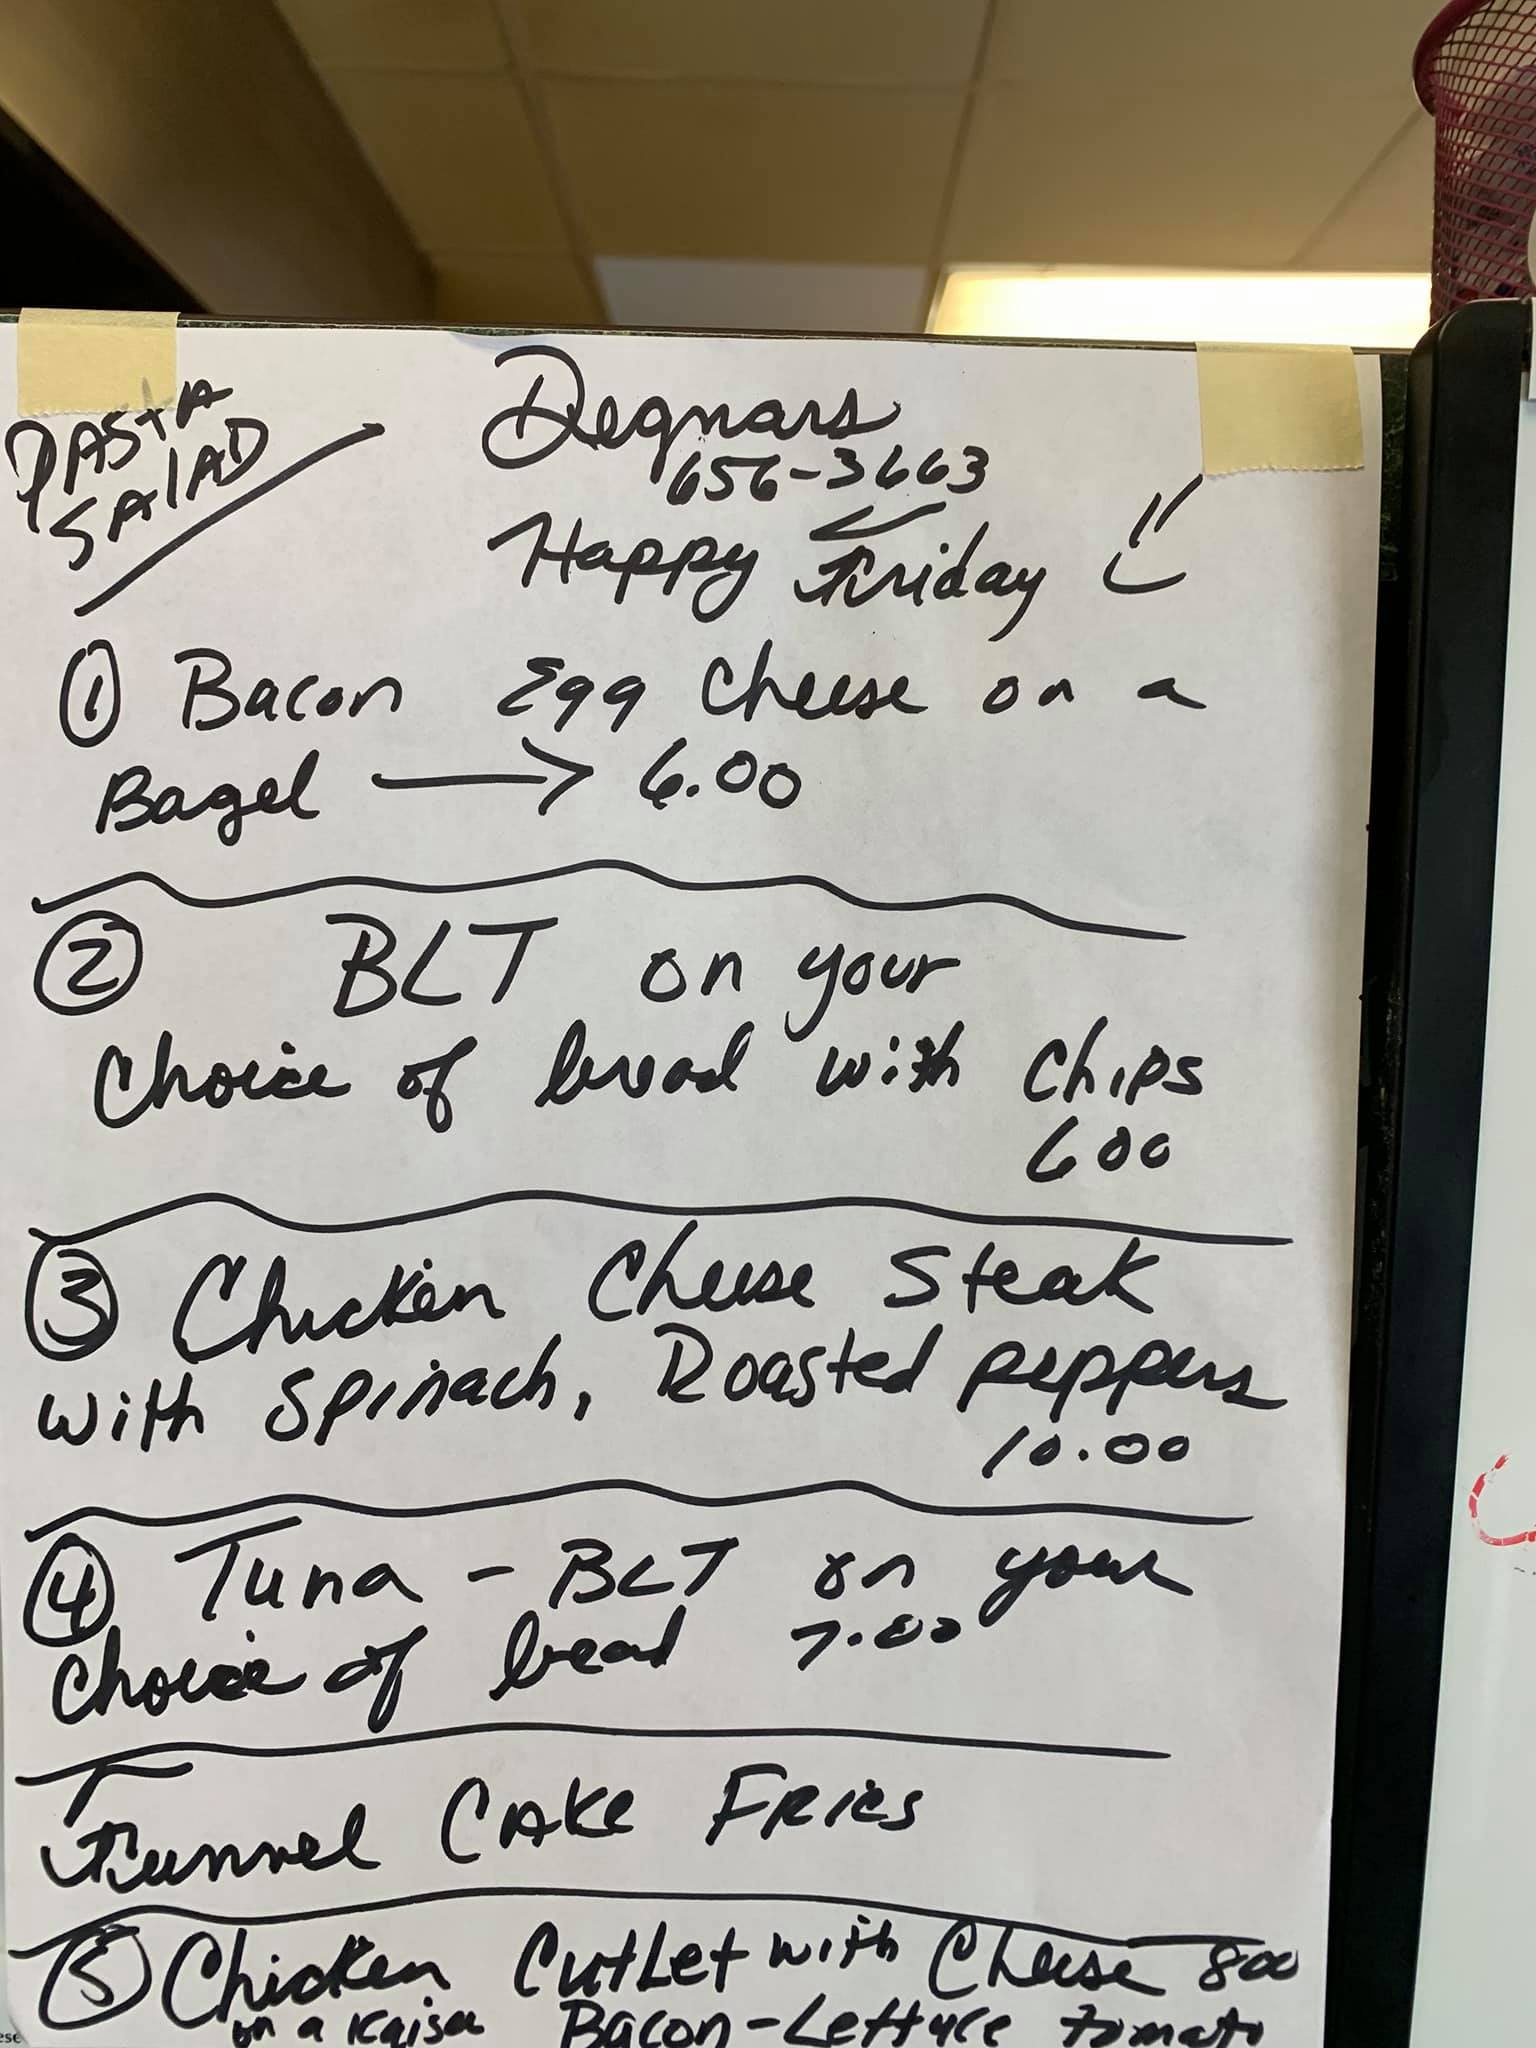 PASTA
SALAD
Degnars
656-3663
Happy Friday
① Bacon Egg Cheese on a
Bagel → 6.00
② BLT on your
Choice of bread with Chips
600
③ Chicken Cheese Steak
with Spinach, Roasted peppers
10.00
④ Tuna - BLT on your
Choice of bread 7.00
Funnel CAKE FRIES
⑤ Chicken Cutlet with Cheese 800
on a Kaiser Bacon-Lettuce tomato